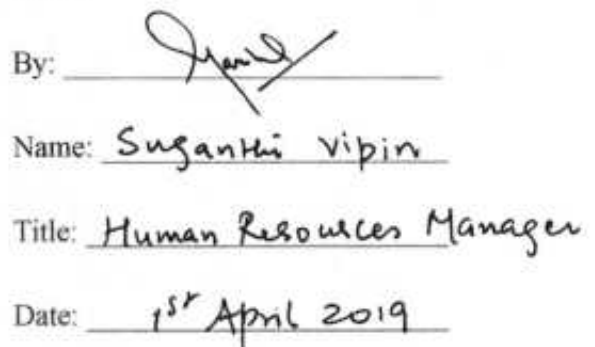 By:
Name: Suganthi Vipin
Title: Human Resources Manager
Date: 1st April 2019